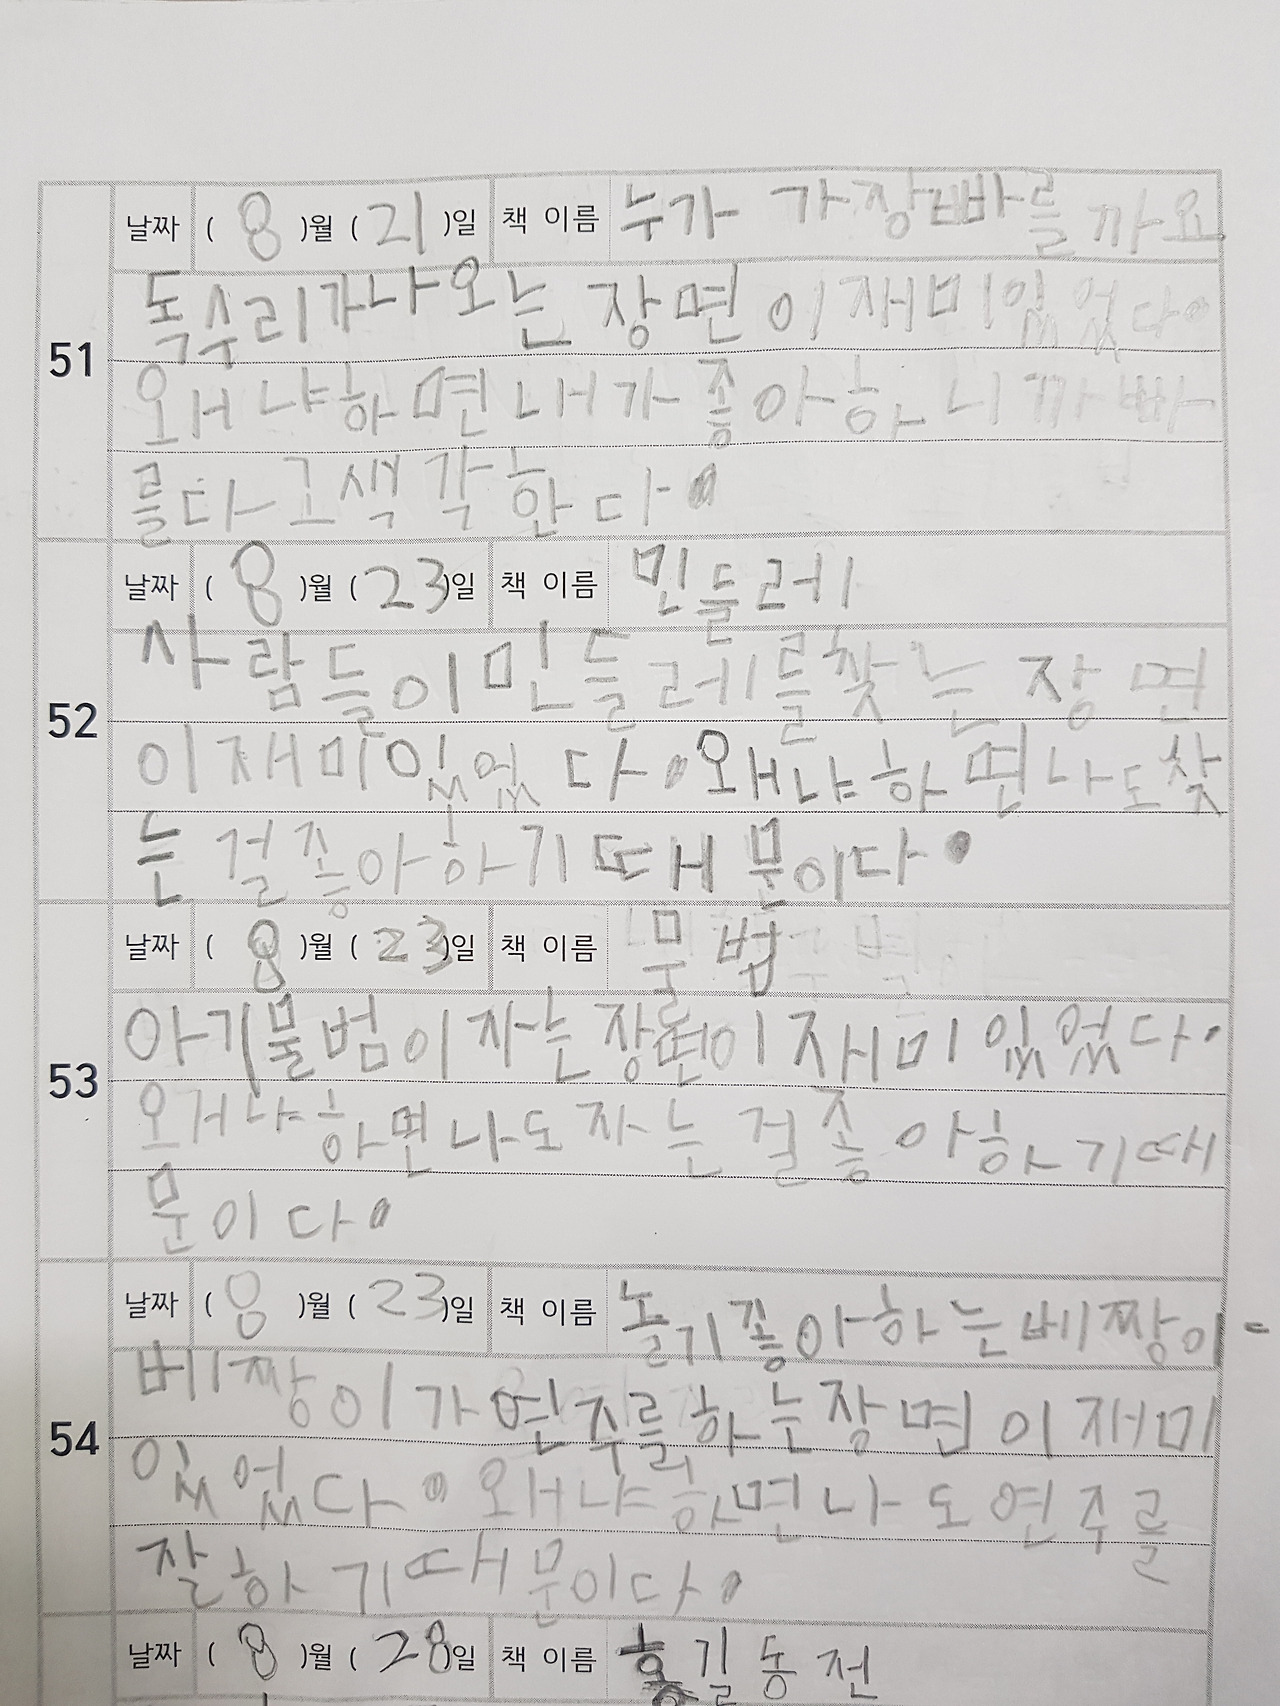 날짜 ( 8 )월 ( 21 )일 책 이름 누가 가장빠를까요
51
독수리가나오는 장면이재미있었다.
왜냐하면내가좋아하니까빠
를다고색각한다.
날짜 ( 8 )월 ( 23 )일 책 이름 민들레
52
사람들이민들레를찾는장면
이재미있었다.왜냐하면나도찾
는걸좋아하기때문이다.
날짜 ( 8 )월 ( 23 )일 책 이름 물범
53
아기물범이자는장면이재미있었다.
외냐하면나도자는걸좋아하기때
문이다.
날짜 ( 8 )월 ( 23 )일 책 이름 놀기좋아하는베짱이
54
베짱이가연주를하는장면이재미
있었다.왜냐하면나도연주를
잘하기때문이다.
날짜 ( 8 )월 ( 28 )일 책 이름 홍길동전